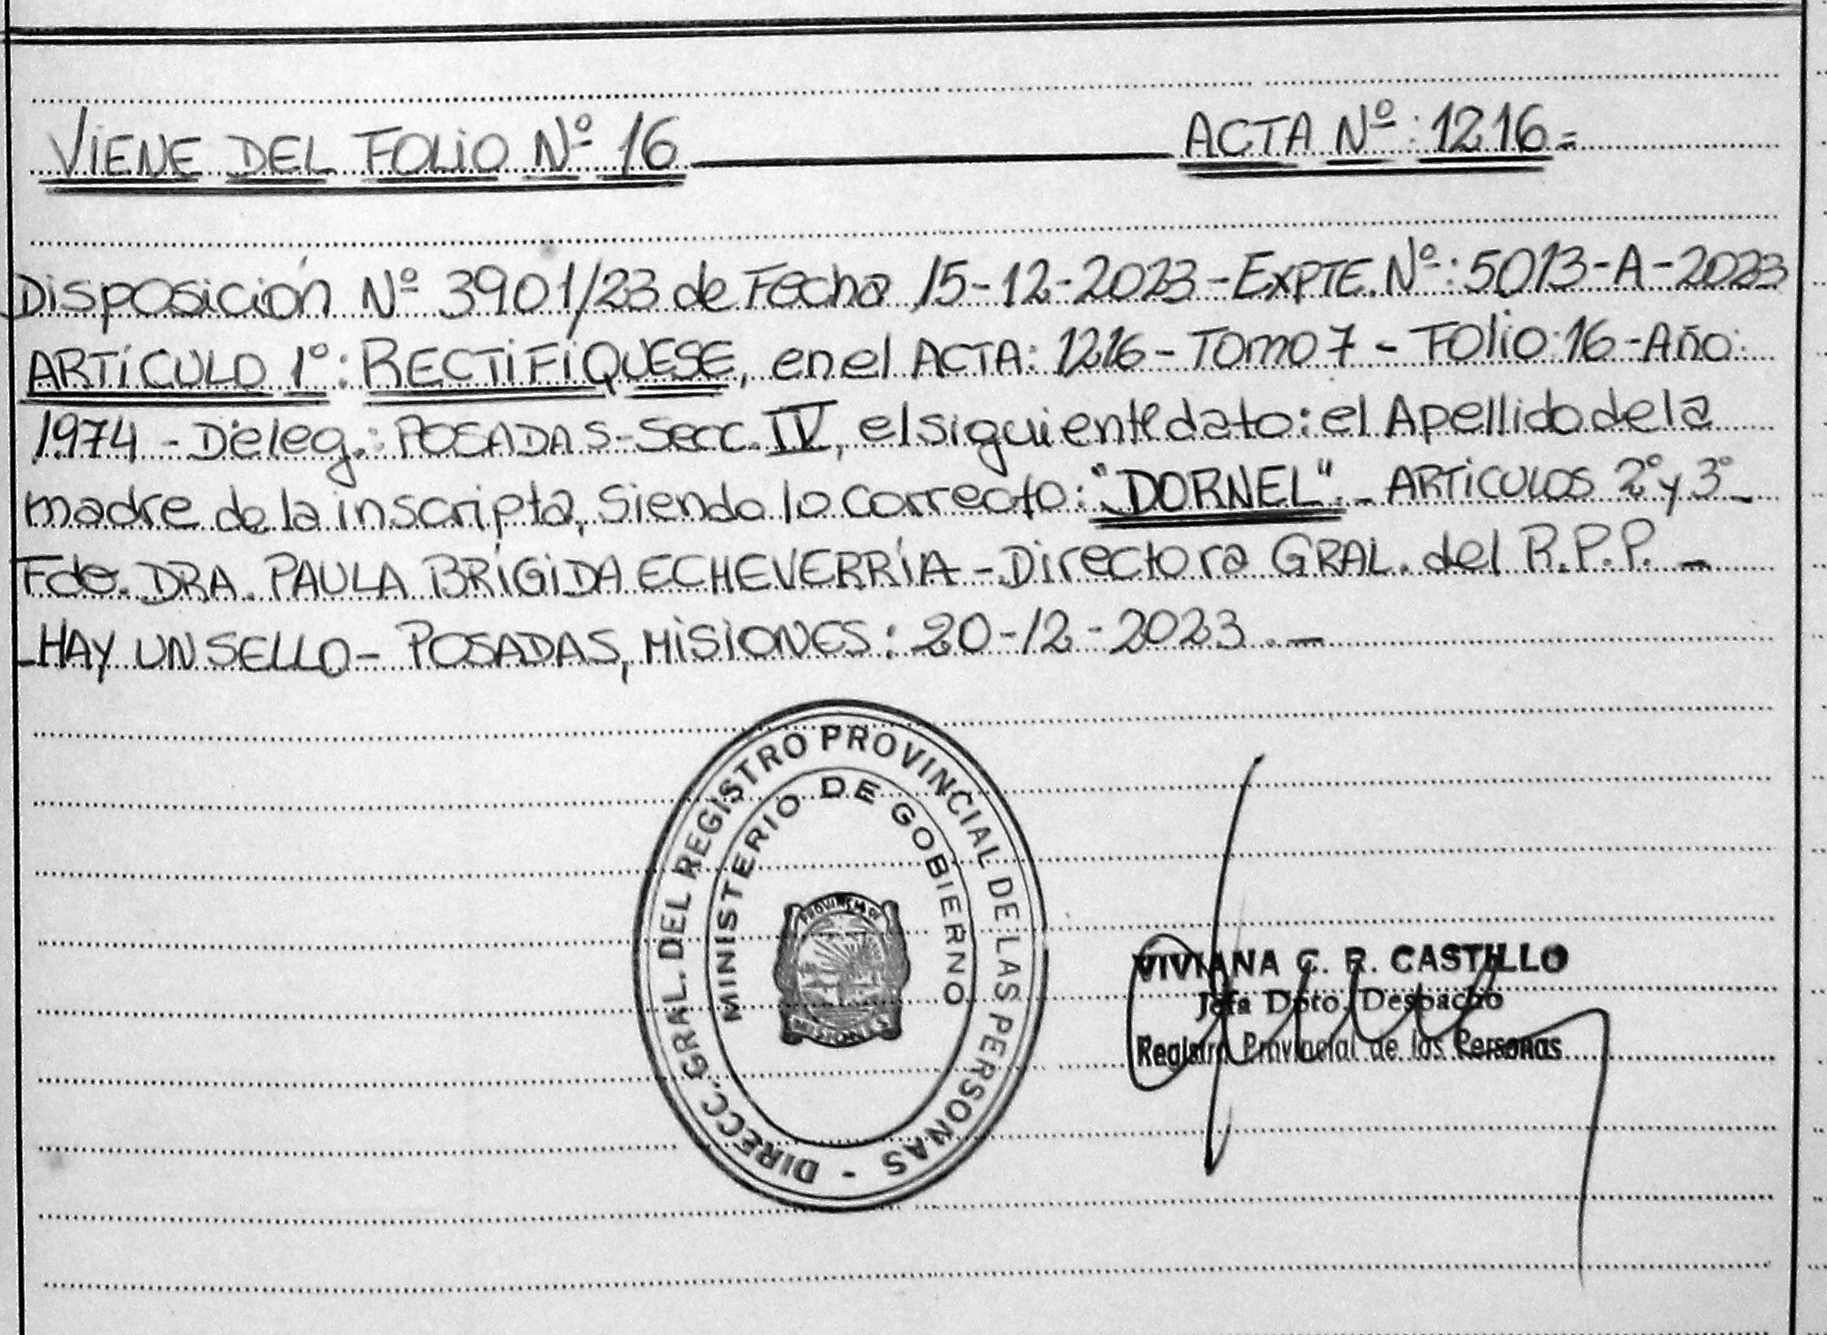 VIENE DEL FOLIO Nº 16 ACTA Nº: 1216=
Disposición Nº 3901/23 de Fecha 15-12-2023-EXPTE.Nº:5013-A-2023
ARTÍCULO 1º: RECTIFÍQUESE, en el ACTA: 1216-TOMO 7-FOLIO:16-Año:
1974-Deleg.: POSADAS-Secc. IV, el siguiente dato: el Apellido de la
madre de la inscripta, siendo lo correcto: "DORNEL".-ARTÍCULOS 2º y 3º-
Fdo. DRA. PAULA BRÍGIDA ECHEVERRÍA-Directora GRAL. del R.P.P.-
-HAY UN SELLO-POSADAS, MISIONES: 20-12-2023.-
DIRECC. GRAL. DEL REGISTRO PROVINCIAL DE LAS PERSONAS -
MINISTERIO DE GOBIERNO
PROVINCIA DE
MISIONES
VIVIANA C. R. CASTILLO
Jefa Dpto. Despacho
Registro Provincial de las Personas